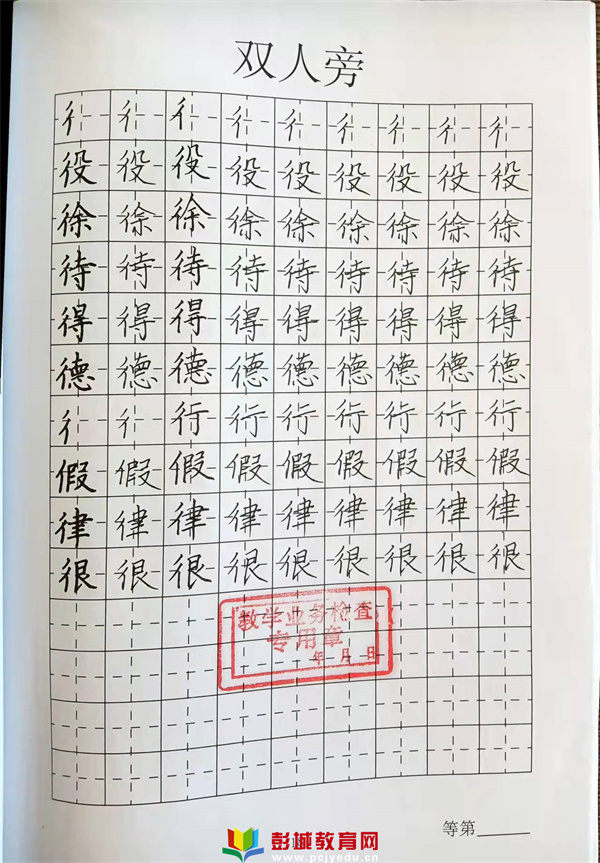 双人旁
彳彳彳彳彳彳彳彳彳
役役役役役役役役役
徐徐徐徐徐徐徐徐徐
待待待待待待待待待
得得得得得得得得得
德德德德德德德德德
彳彳行行行行行行行
假假假假假假假假假
律律律律律律律律律
很很很很很很很很很
教学业务检查
专用章
年 月 日
等第
彭城教育网
www.pcjyedu.cn